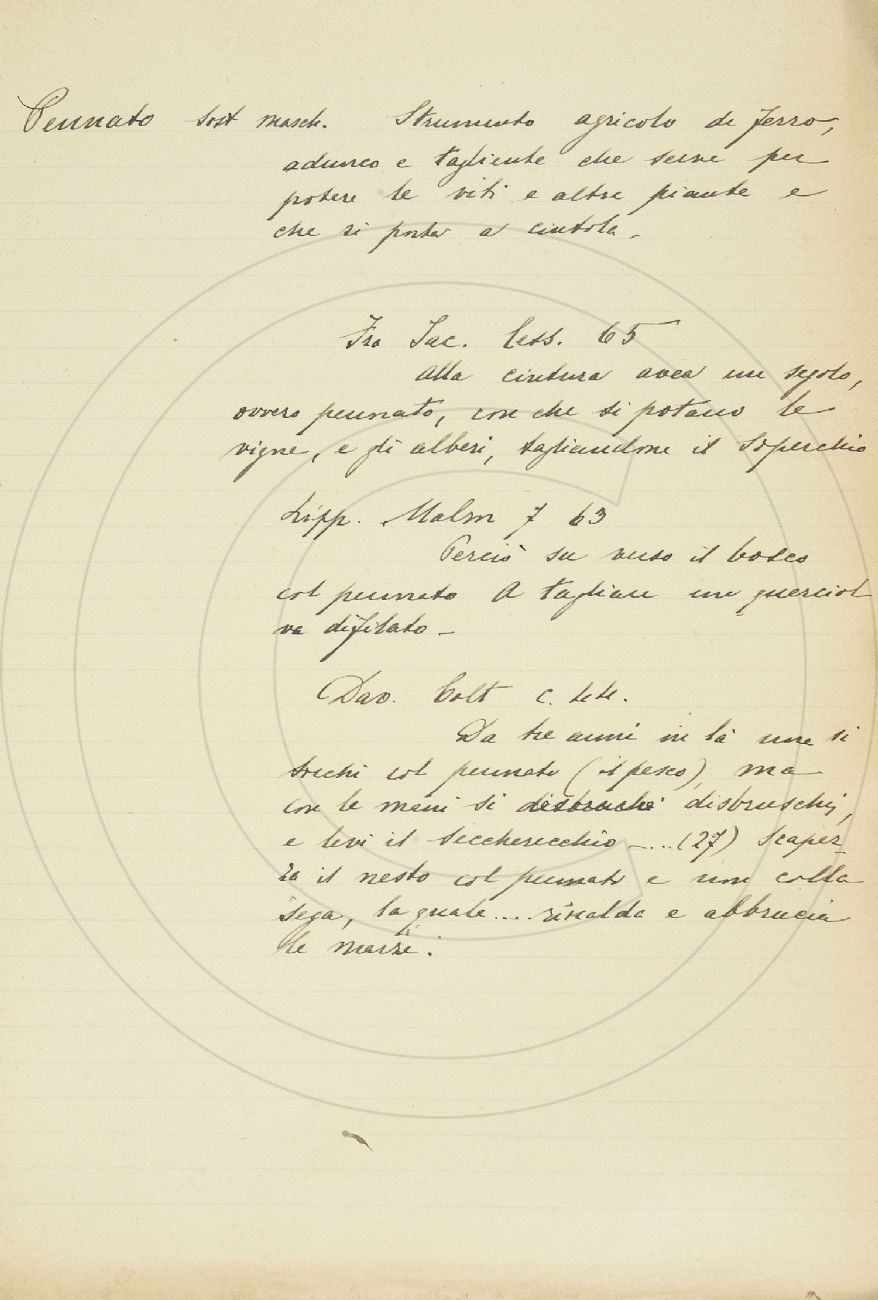 Pennato sost masch. Strumento agricolo di ferro,
adunco e tagliente che serve per
potere le viti e altre piante e
che si porta a cintola.
Fra Iac. Cess. 65
Alla cintura avea un segolo,
ovvero pennato, con che si potano le
vigne, e gli alberi, tagliandone il soperchio
Lipp. Malm 7 63
Perciò su verso il bosco
col pennato A tagliare un querciol
va difilato -
Dav. Colt c.
Da tre anni in là non si
tocchi col pennato (il pesco), ma
con le mani si disbruchi disbruschi,
e levi il seccherecchio - ... (27) Scapez-
za il nesto col pennato e non colla
sega, la quale .... riscalda e abbrucia
le marze.